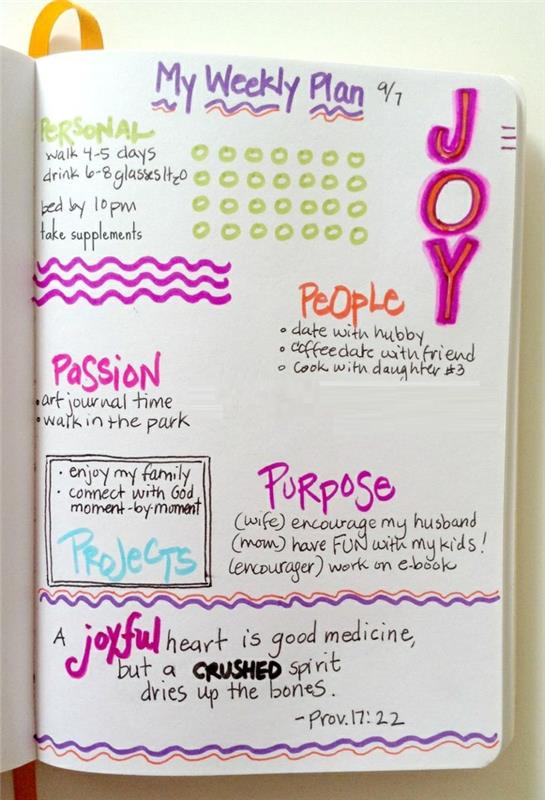 My Weekly Plan 9/7
JOY
PERSONAL
walk 4-5 days
drink 6-8 glasses H2O
bed by 10pm
take supplements
PEOPLE
• date with hubby
• coffee date with friend
• cook with daughter #3
PASSION
• art journal time
• walk in the park
• enjoy my family
• connect with God
moment-by-moment
PROJECTS
PURPOSE
(wife) encourage my husband
(mom) have FUN with my kids!
(encourager) work on e-book
A joyful heart is good medicine,
but a CRUSHED spirit
dries up the bones.
-Prov. 17:22